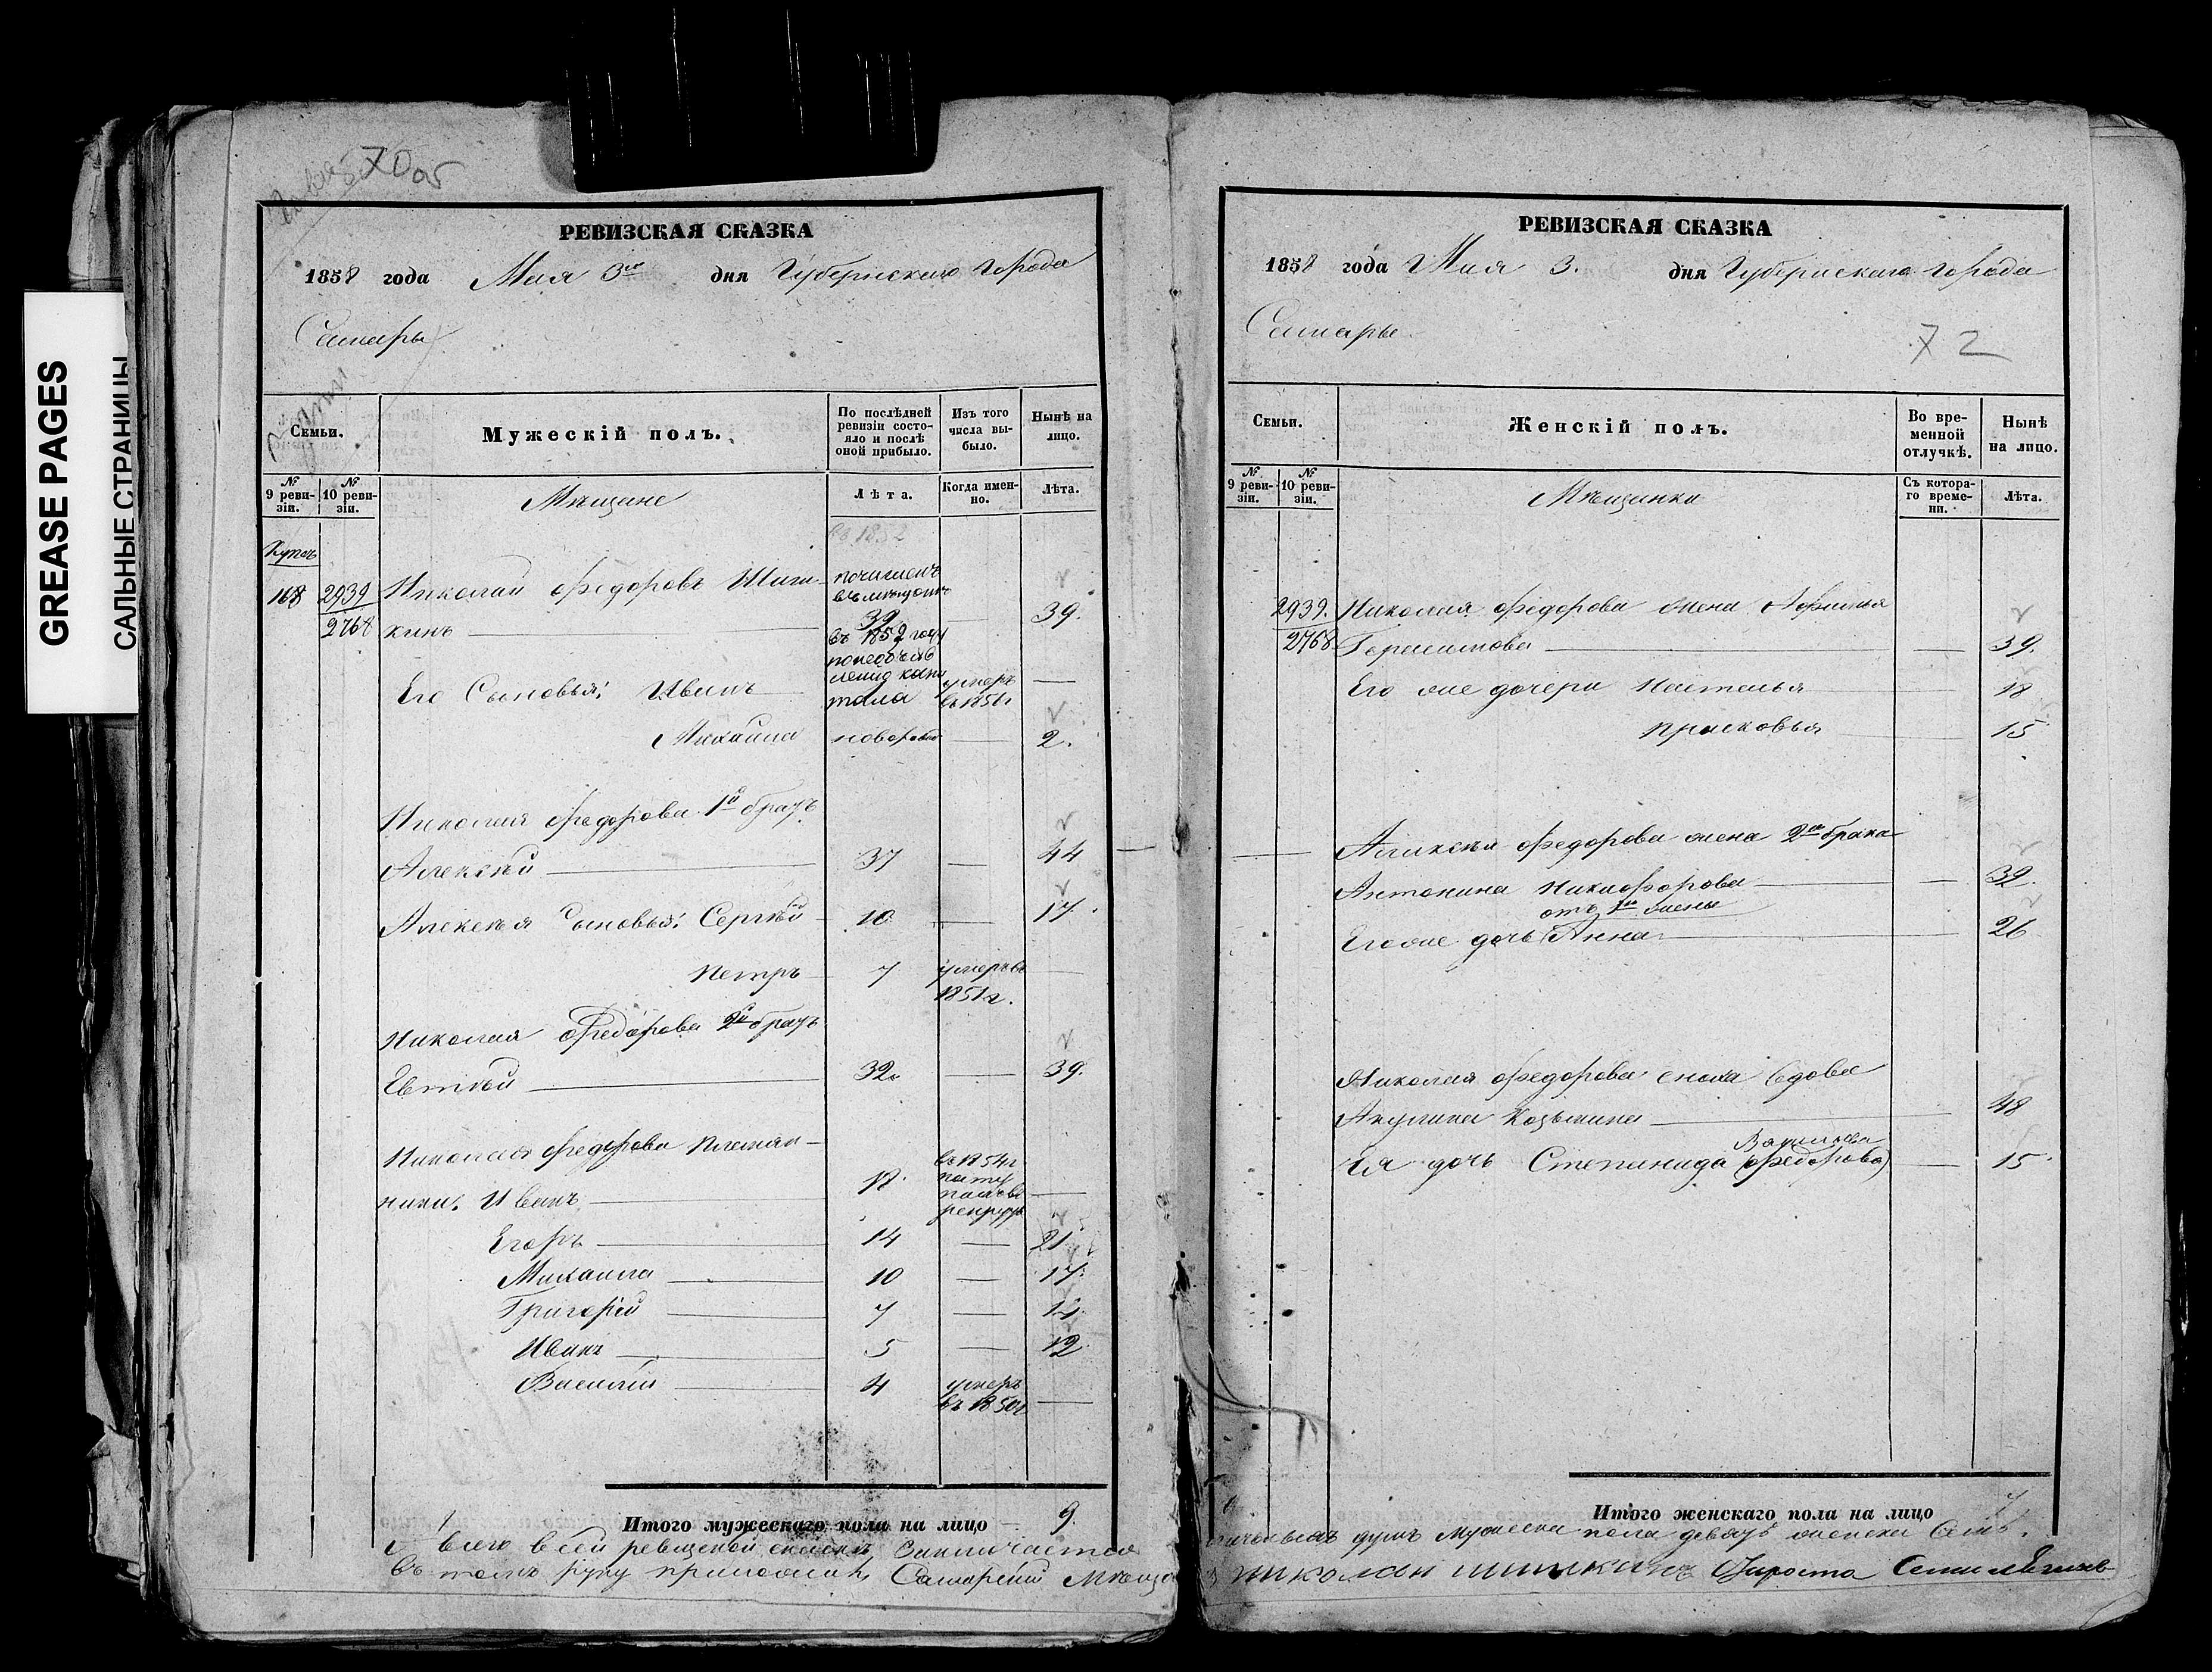 GREASE PAGES
САЛЬНЫЕ СТРАНИЦЫ
70 об
РЕВИЗСКАЯ СКАЗКА
1858 года Мая 3го дня Губернскаго Города
Самары
Семьи.
Мужескій полъ.
По послѣдней ревизіи состояло и послѣ оной прибыло.
Изъ того числа выбыло.
Нынѣ на лицо.
№ 9 ревизіи.
№ 10 ревизіи.
Мѣщане
Лѣта.
Когда именно.
Лѣта.
въ 1852
Купеч
168 2939 Николай Федоровъ Шиш- 39 39.
2768 кинъ
въ 1852 году
Его Сыновья: Иванъ умеръ въ 1856 г
Михайла новорож 2.
Николая Федорова 1й братъ
Алексѣй 37 — 44
Алексѣя сыновья: Сергѣй 10 — 17.
Петръ 7 умеръ въ 1851 г.
Николая Федорова 2й братъ
Евтѣй 32. — 39.
Николая Федорова племян-
ники: Иванъ въ 1854 г
Егоръ 14 — 21
Михаила 10 — 17.
Григорій 7 — 14.
Иванъ 5 — 12
Василій 4 умеръ въ 1850 г
Итого мужескаго пола на лицо 9.
РЕВИЗСКАЯ СКАЗКА
1858 года Мая 3. дня Губернскаго города
Самары
72
Семьи.
Женскій полъ.
Во временной отлучкѣ.
Нынѣ на лицо.
№ 9 ревизіи.
№ 10 ревизіи.
Мѣщанки
Съ котораго времени.
Лѣта.
2939. Николая Федорова жена
2768 Герасимова — 39.
Его же дочери Наталья 18
Прасковья 15
Алексѣя Федорова жена 2го брака
Антонина Никифорова — 32.
отъ 1й жены
Его же дочь Анна 26
Николая Федорова сноха вдова
Акулина Козьмина 48
Ея дочь Степанида (Федорова) — 15
Итого женскаго пола на лицо 7
и всего въ сей ревизской сказкѣ заключается наличныхъ душъ мужеска пола девять женска семь.
въ томъ руку приложилъ Самарскій Мѣщанинъ Николай Шишкинъ Староста